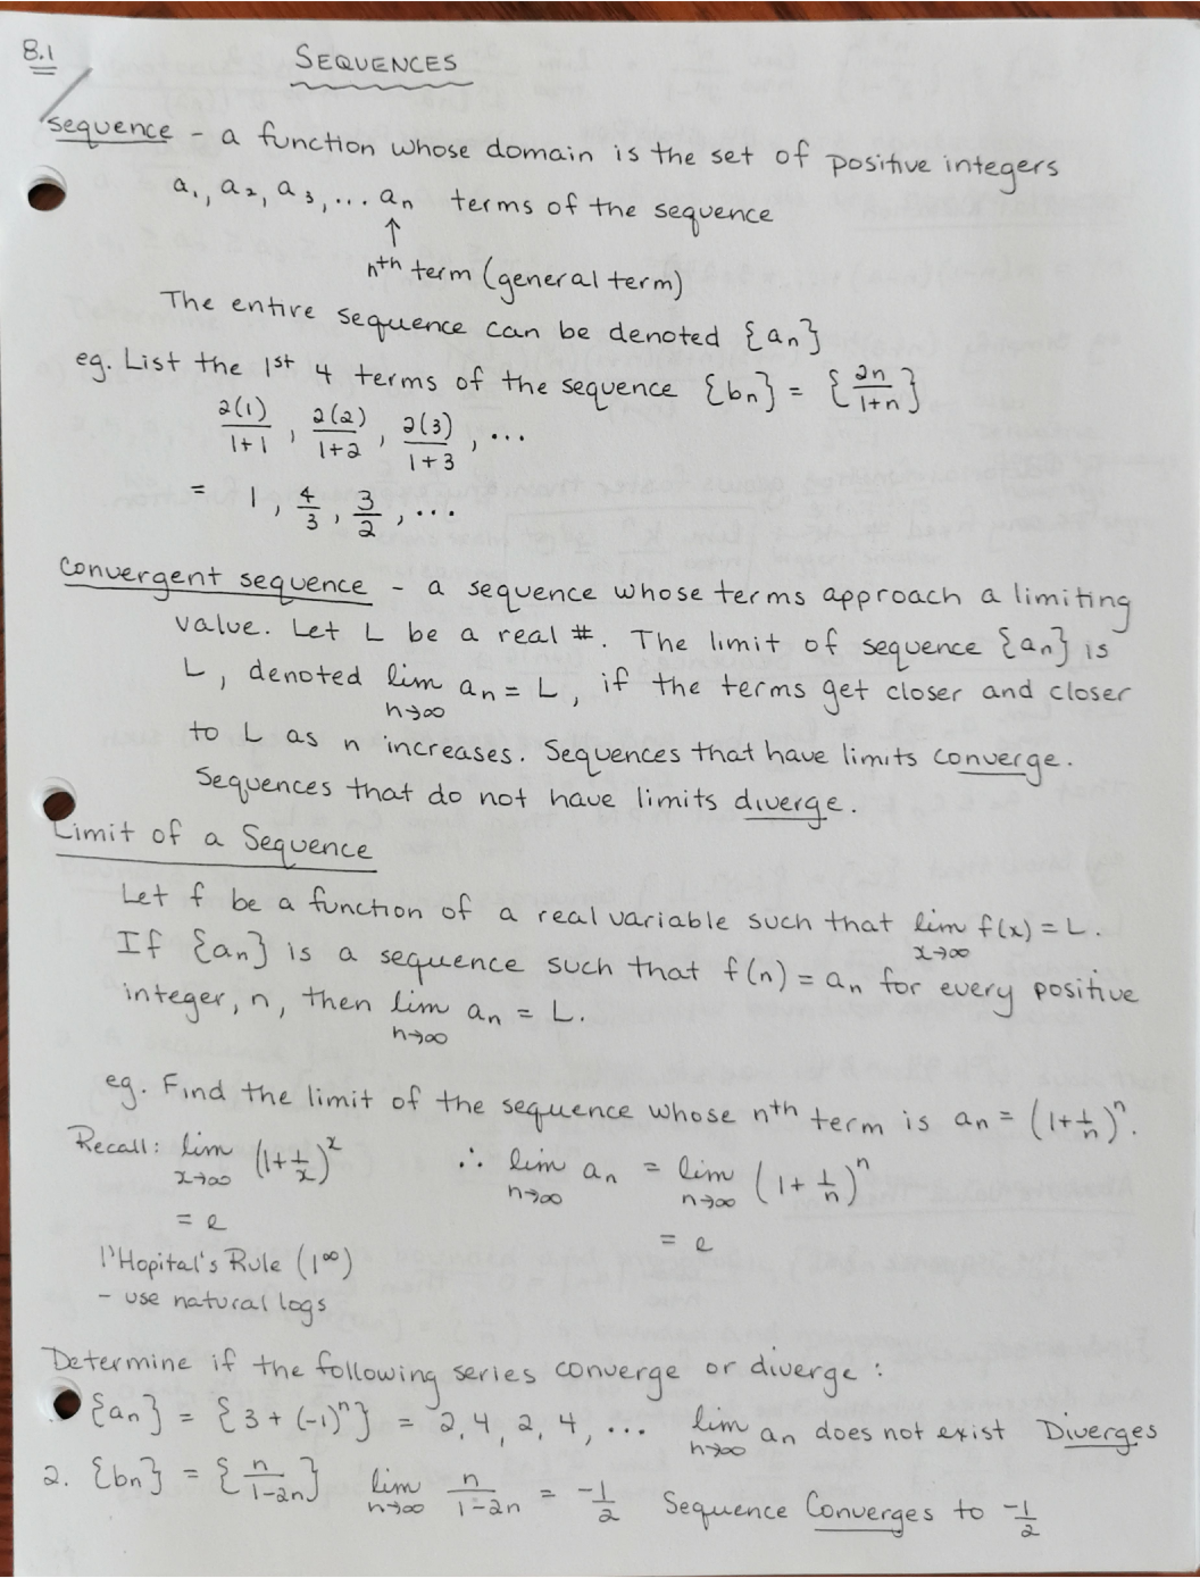 8.1
SEQUENCES
sequence - a function whose domain is the set of positive integers
a₁, a₂, a₃, ... aₙ terms of the sequence
↑
nᵗʰ term (general term)
The entire sequence can be denoted {aₙ}
eg. List the 1ˢᵗ 4 terms of the sequence {bₙ} = {2n/(1+n)}
2(1)/(1+1), 2(2)/(1+2), 2(3)/(1+3), ...
= 1, 4/3, 3/2, ...
Convergent sequence - a sequence whose terms approach a limiting
value. Let L be a real #. The limit of sequence {aₙ} is
L, denoted lim n→∞ aₙ = L, if the terms get closer and closer
to L as n increases. Sequences that have limits converge.
Sequences that do not have limits diverge.
Limit of a Sequence
Let f be a function of a real variable such that lim x→∞ f(x) = L.
If {aₙ} is a sequence such that f(n) = aₙ for every positive
integer, n, then lim n→∞ aₙ = L.
eg. Find the limit of the sequence whose nᵗʰ term is aₙ = (1+1/n)ⁿ.
Recall: lim x→∞ (1+1/x)ˣ ∴ lim n→∞ aₙ = lim n→∞ (1+1/n)ⁿ
= e = e
l'Hopital's Rule (1^∞)
- use natural logs
Determine if the following series converge or diverge:
{aₙ} = {3+(-1)ⁿ} = 2, 4, 2, 4, ... lim n→∞ aₙ does not exist Diverges
2. {bₙ} = {n/(1-2n)} lim n→∞ n/(1-2n) = -1/2 Sequence Converges to -1/2